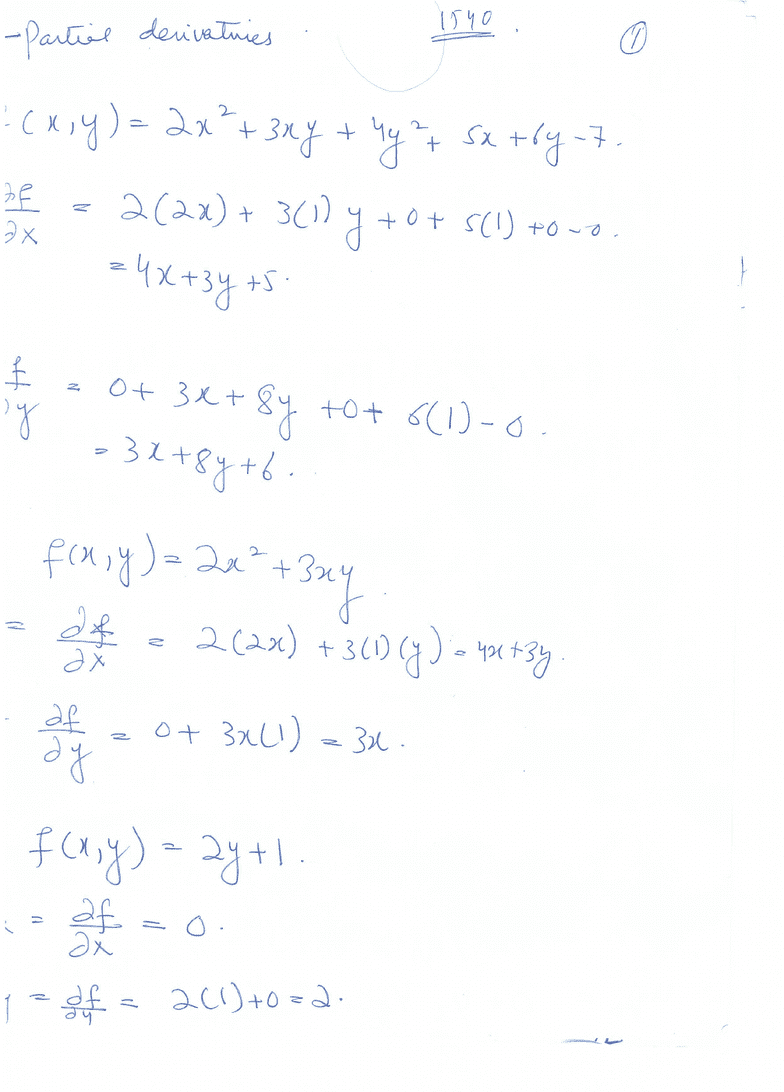 -Partial derivatives 1540 . ①
(x,y) = 2x² + 3xy + 4y² + 5x + 6y - 7.
∂f/∂x = 2(2x) + 3(1) y + 0 + 5(1) + 0 - 0.
= 4x + 3y + 5.
f/∂y = 0 + 3x + 8y + 0 + 6(1) - 0.
= 3x + 8y + 6.
f(x,y) = 2x² + 3xy
= ∂f/∂x = 2(2x) + 3(1)(y) = 4x + 3y.
∂f/∂y = 0 + 3x(1) = 3x.
f(x,y) = 2y + 1.
= ∂f/∂x = 0.
= ∂f/∂y = 2(1) + 0 = 2.